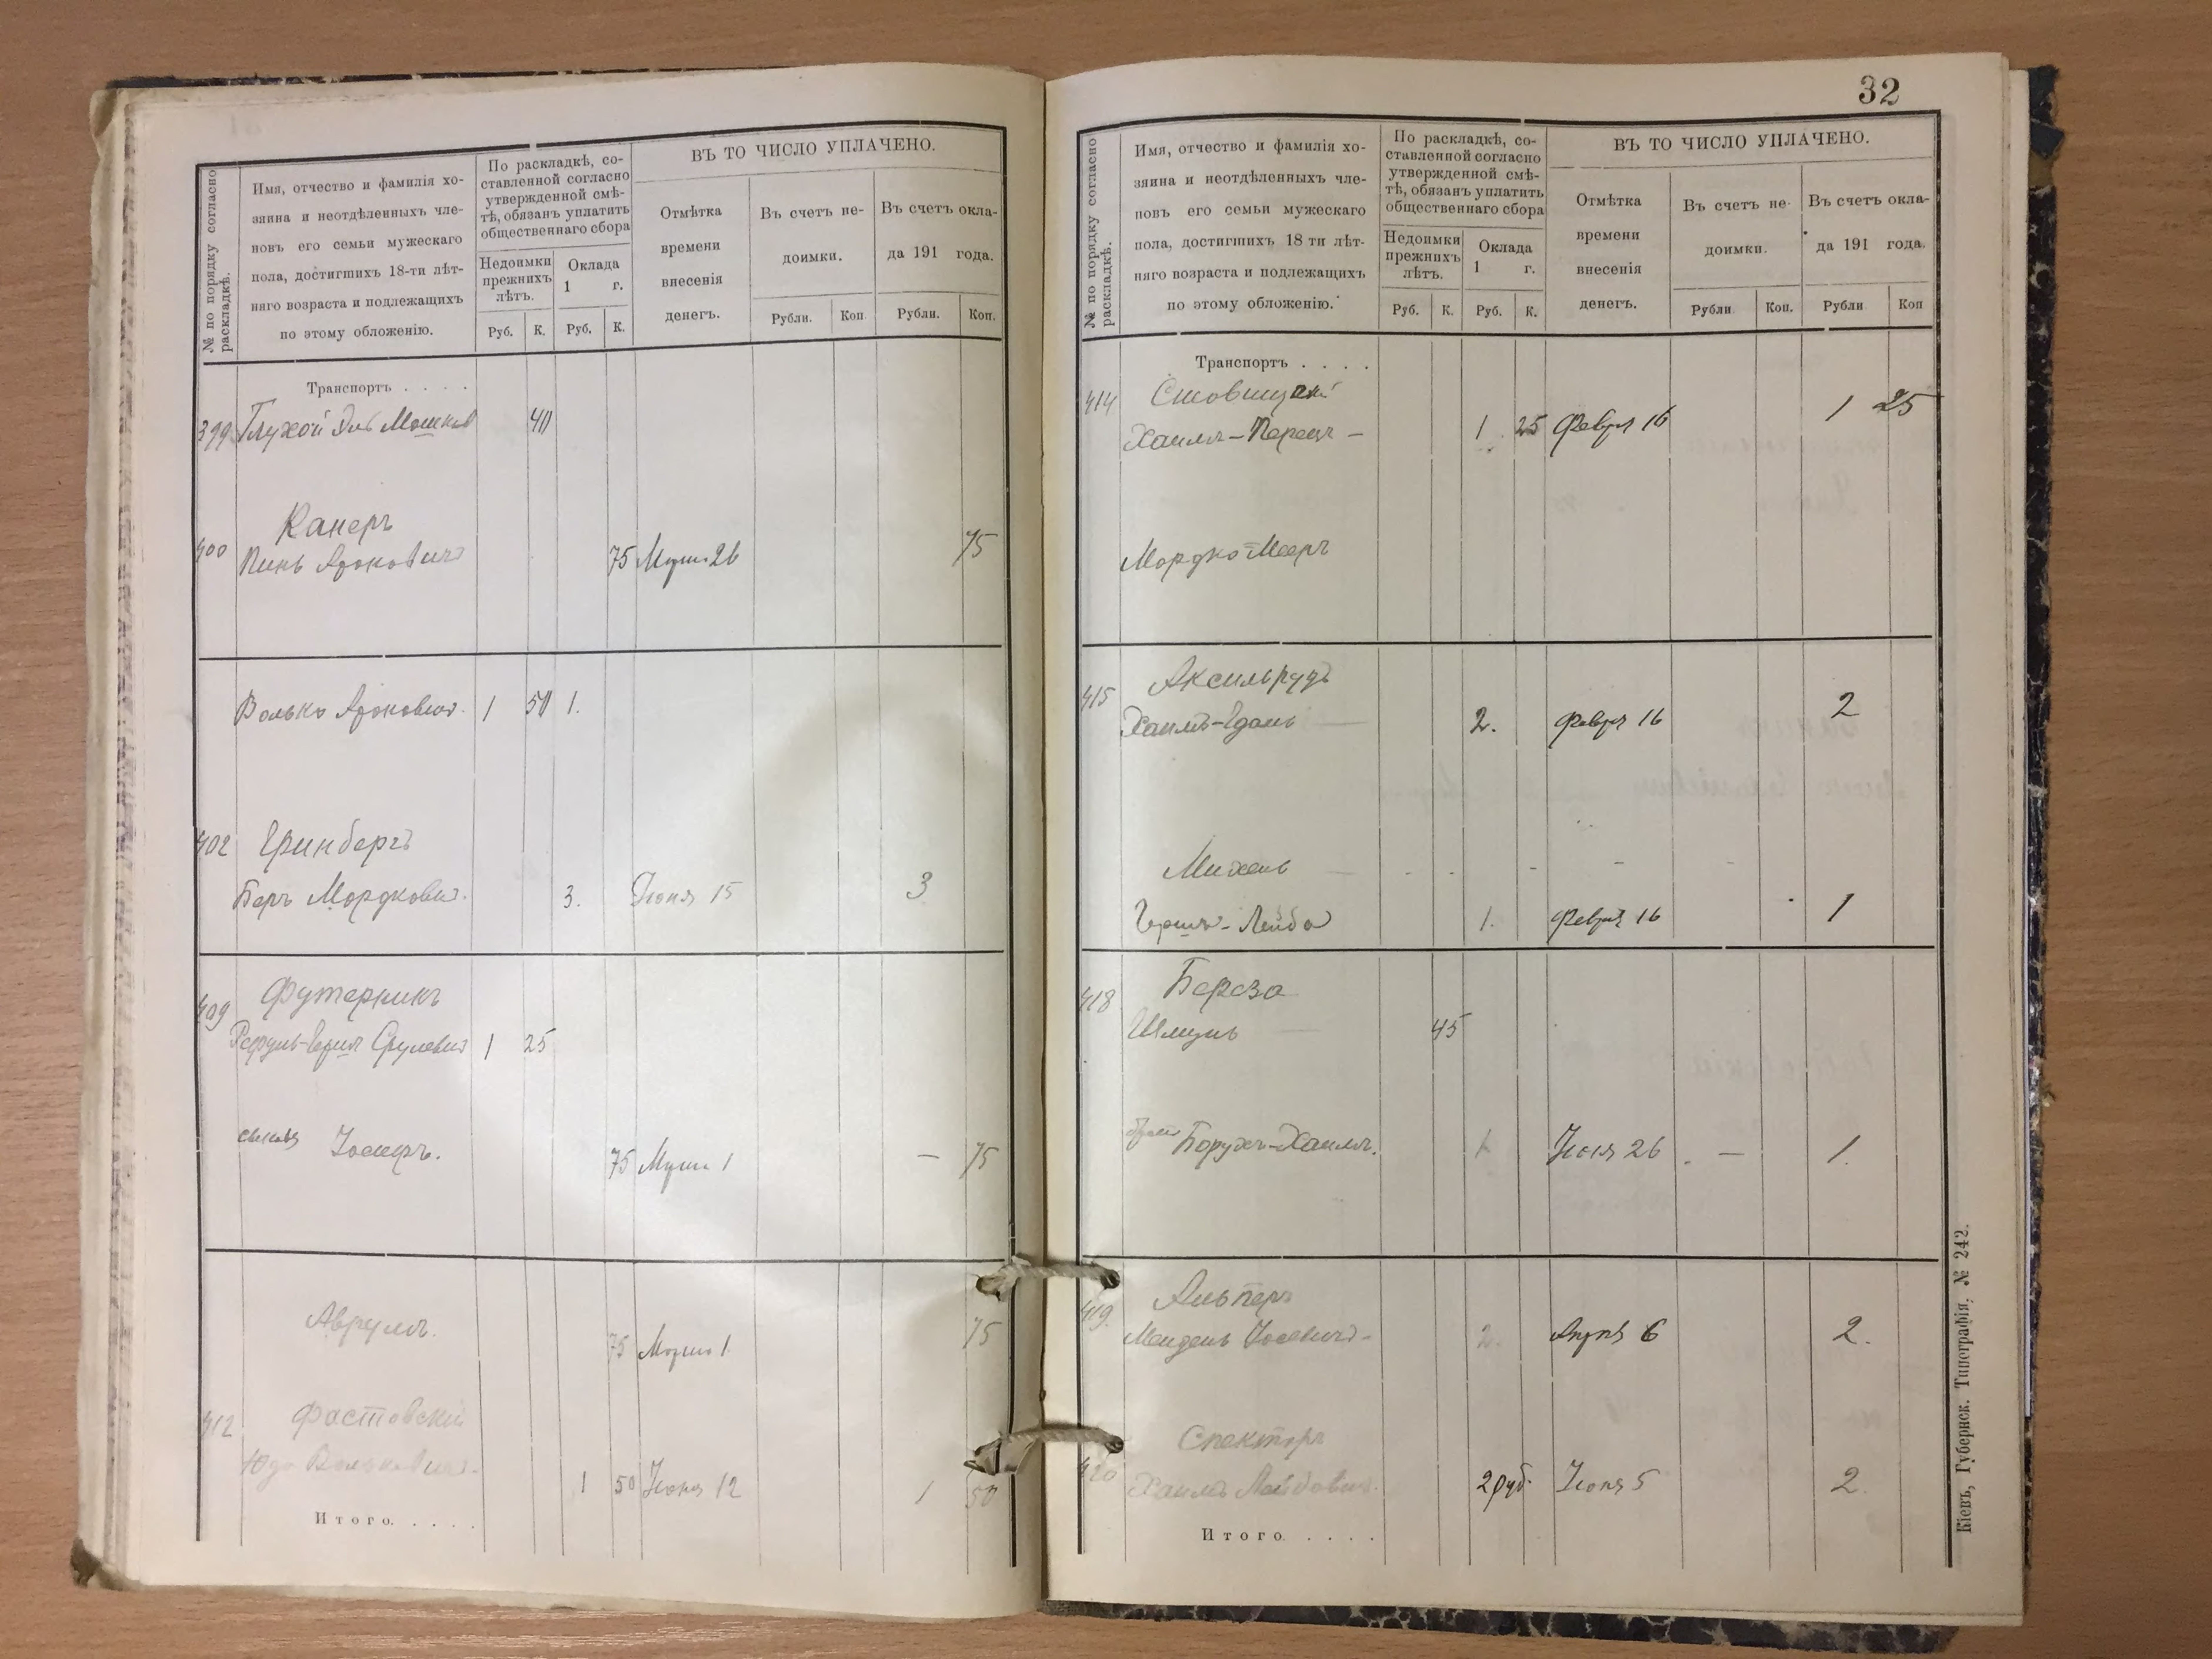 № по порядку согласно раскладкѣ.
Имя, отчество и фамилія хо-
зяина и неотдѣленныхъ чле-
новъ его семьи мужескаго
пола, достигшихъ 18-ти лѣт-
няго возраста и подлежащихъ
по этому обложенію.
По раскладкѣ, со-
ставленной согласно
утвержденной смѣ-
тѣ, обязанъ уплатить
общественнаго сбора
Недоимки
прежнихъ
лѣтъ.
Оклада
1 г.
Руб. К. Руб. К.
ВЪ ТО ЧИСЛО УПЛАЧЕНО.
Отмѣтка
времени
внесенія
денегъ.
Въ счетъ не-
доимки.
Въ счетъ окла-
да 191 года.
Рубли. Коп Рубли. Коп.
Транспортъ . . . .
399 Глухой Эль Мошков 40
400 Канеръ
Пинь Ароновичъ 75 26 75
Волько Аронович. 1 50 1.
402 Гринбергъ
Беръ Мордкович. 3. Іюня 15 3
409 Футерникъ
Срулевич 1 25
Іосифъ. 75 1 — 75
Аврумъ. 75 1 75
412 Фастовскій
Юдо Вольковичъ. 1 50 Іюня 12 1 50
Итого. . . . .
32
№ по порядку согласно раскладкѣ.
Имя, отчество и фамилія хо-
зяина и неотдѣленныхъ чле-
новъ его семьи мужескаго
пола, достигшихъ 18 ти лѣт-
няго возраста и подлежащихъ
по этому обложенію.
По раскладкѣ, со-
ставленной согласно
утвержденной смѣ-
тѣ, обязанъ уплатить
общественнаго сбора
Недоимки
прежнихъ
лѣтъ.
Оклада
1 г.
Руб. К. Руб. К.
ВЪ ТО ЧИСЛО УПЛАЧЕНО.
Отмѣтка
времени
внесенія
денегъ.
Въ счетъ не-
доимки.
Въ счетъ окла-
да 191 года.
Рубли Коп. Рубли Коп
Транспортъ . . . .
414
Хаимъ-Перецъ - 1 25 Февр 16 1 25
Мордко Мееръ
415 Аксильрудъ
Хаимъ- 2. Февр 16 2
Михель
Гершъ-Лейба 1. Февр 16 1
418 Береза
Шмуль 45
Борухъ-Хаимъ. 1 Іюня 26 — 1.
419 Альперъ
Мендель Іосевичъ- 2. Апрѣ 6 2.
420 Спекторъ
Хаимъ Лейбович. 2 руб. Іюня 5 2
Итого. . . . .
Кіевъ, Губернск. Типографія, № 242.